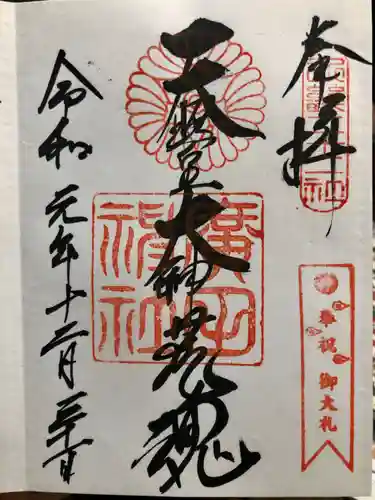 奉拝
奉祝 御大礼
天照皇大神荒魂
廣田神社
令和元年十二月三十日